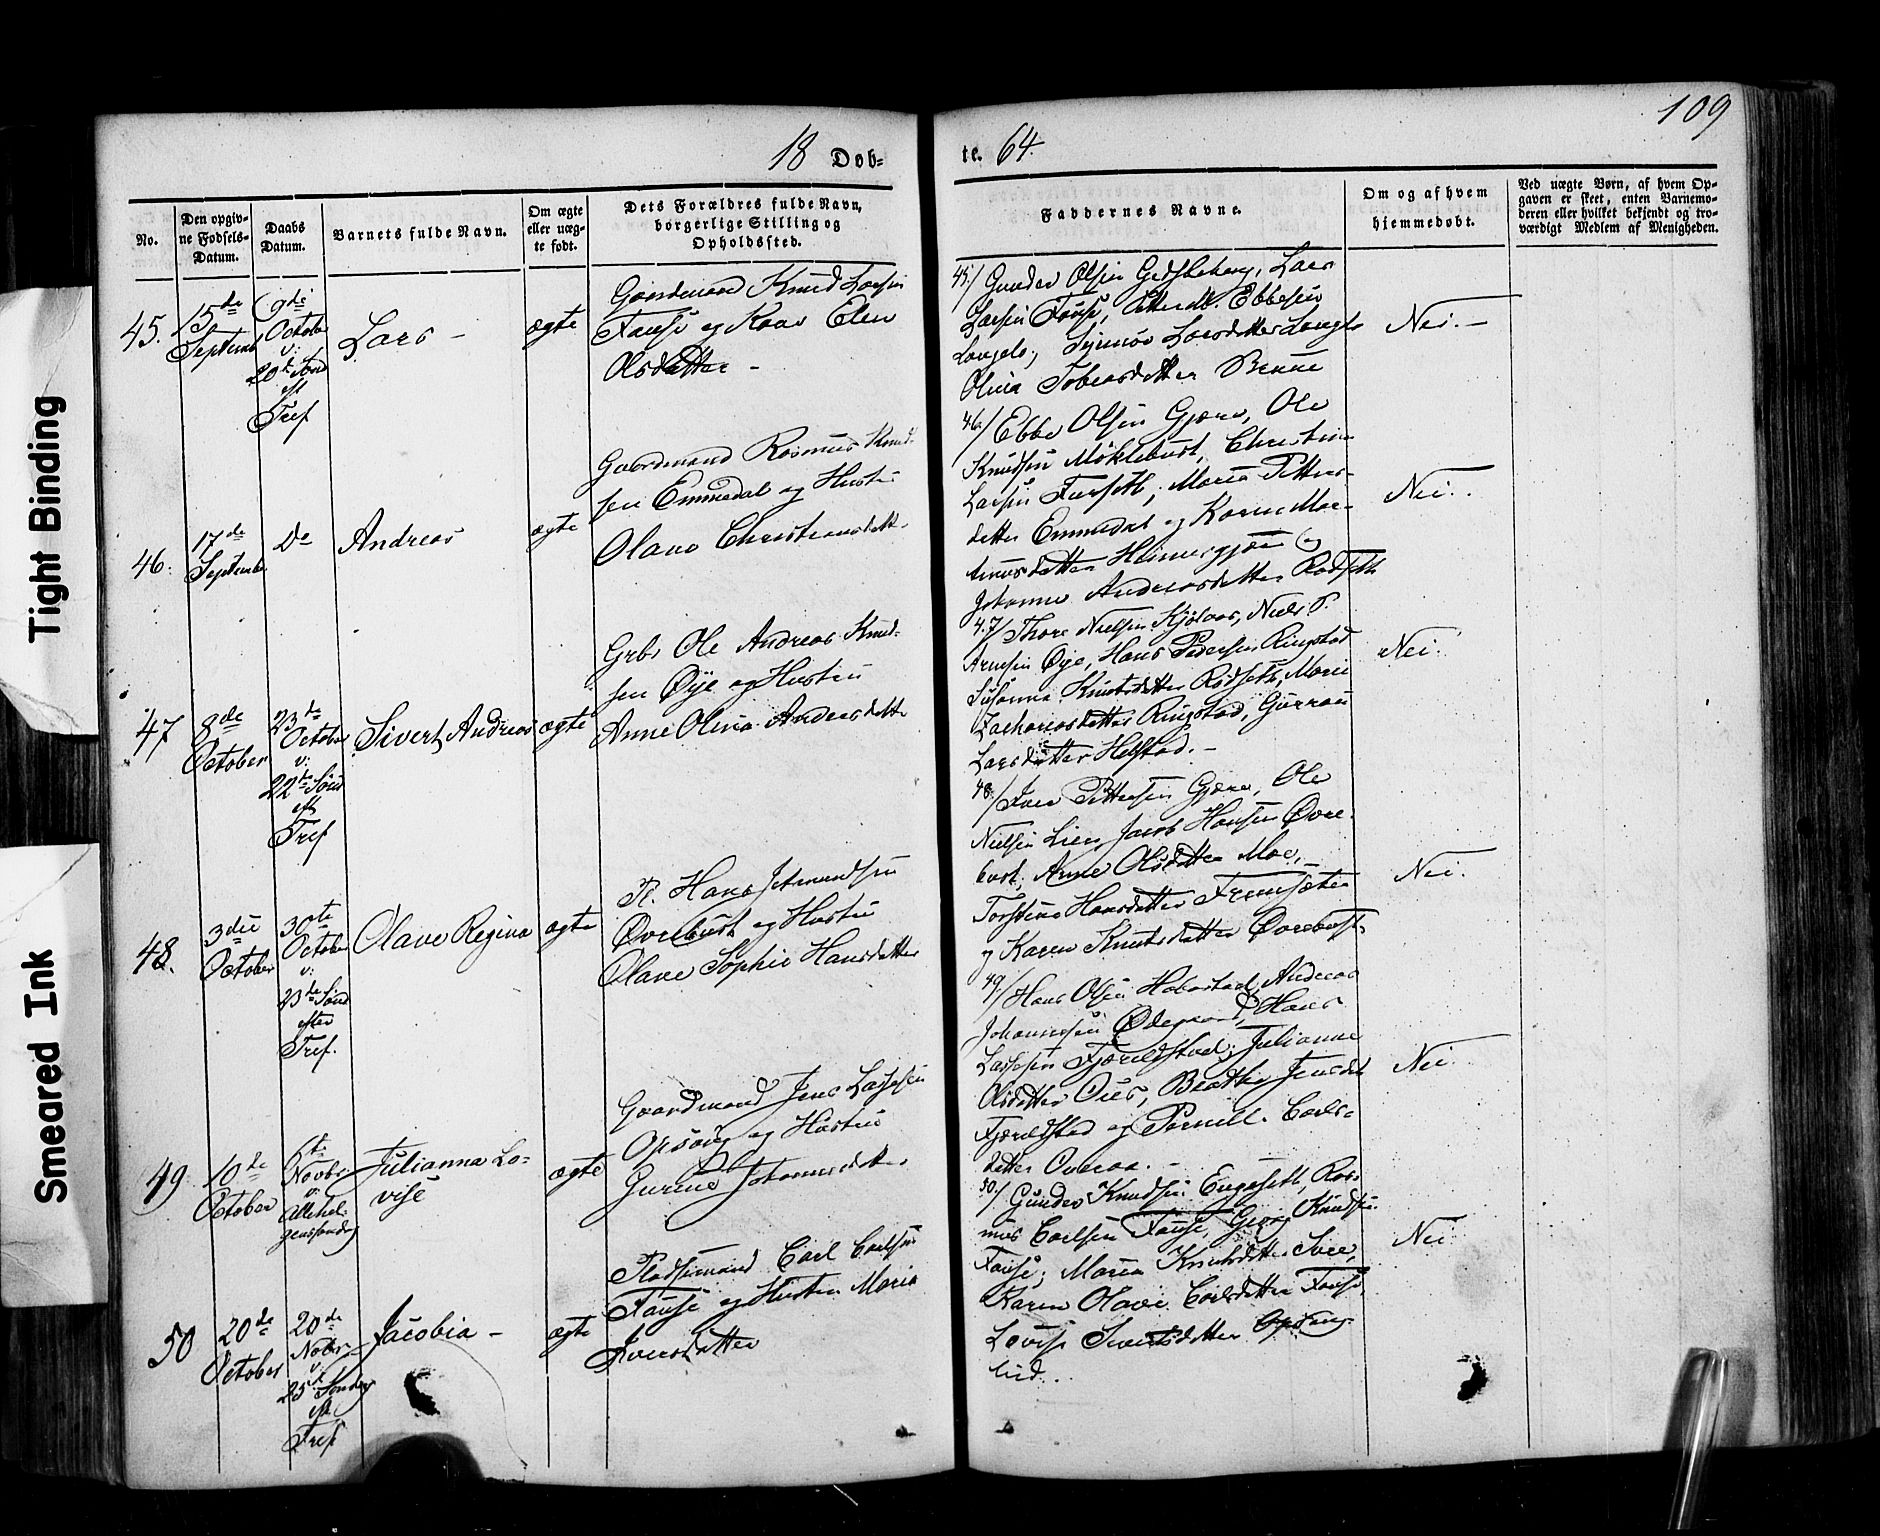 109
18 Dob-
te. 64.
No.
Den opgiv-
ne Fødsels-
Datum.
Daabs
Datum.
Barnets fulde Navn.
Om ægte
eller uæg-
te født.
Dets Forældres fulde Navn,
borgerlige Stilling og
Opholdssted.
Faddernes Navne.
Om og af hvem
hjemmedøbt.
Ved uægte Børn, af hvem Op-
gaven er skeet, enten Barnemo-
deren eller hvilket bekjendt og tro-
værdigt Medlem af Menigheden.
Tight Binding
Smeared Ink
45.
15de
Septemb
9de
October
v:
20de Sønd
eft
Tref
Lars -
ægte
Gaardmand Knud Larsen
Fause og Kone Elen
Olsdatter -
45/ Gunder Olsen Lars
Larsen Fause, Ebbesen
Larsdatter
Olina Tobiasdatter
Nei. -
46.
17de
Septemb
Do
Andreas
ægte
Gaardmand Rasmus Knud-
sen Emmedal og Hustru
Olave Christiansdatt.
46/ Ebbe Olsen Gjære, Ole
Knudsen Møklebust, Christian
Larsen Furseth, Maria Petters-
datter Emmedal og Karen
Johanne Andreasdatter Rødseth
Nei.
47
8de
October
23de
October
v:
22de Sønd
eft
Tref
Sivert Andreas
ægte
Grbr Ole Andreas Knud-
sen Øye og Hustru
Anne Olina Andersdatter
47/ Thore Nielsen Niels P.
Arnesen Øye, Hans Pedersen Ringstad
Susanna Knutsdatter Rødseth, Marie
Zachariasdatter Ringstad,
Larsdatter Helstad. -
Nei.
48.
3die
October
30te
October
v:
23de Sønd
efter
Tref.
Olave Regina
ægte
Pl. Hans Jetmundsen
Øvrebust og Hustru
Olave Sophie Hansdatter
48/ Iver Pettersen Gjære, Ole
Nielsen Lien, Jacob Hansen Øvre-
bust, Anne Olsdatter Moe, -
Hansdatter
og Karen Knutsdatter Øvrebust.
Nei.
49
10de
October
6te
Novbr
v.
Allehel-
gensøndag
Julianna Lo-
vise
ægte
Gaardmand Jens Lassesen
Opsoug og Hustru
Gurine Johannesdatt.
49/ Hans Olsen Haberstad, Andreas
Johannesen Ødegaard, Hans
Lassesen Fjæreldstad, Julianne
Olsdatter Jensdat
Fjæreldstad og Pernill. Carls-
datter -
Nei
50
20de
October
20de
Nobr
v.
25de Sondag
eft
Tref
Jacobia -
ægte
Pladsemand Carl Carlsen
Fause og Hustru Maria
Iversdatter
50/ Gunder Knudsen Engeseth, Ras-
mus Carlsen Fause, Georg Knudsen
Fause, Maria Knutsdatter
Karen Olave Carlsdatter Fause,
Lovise Sivertsdatter Opsoug-
lid.
Nei